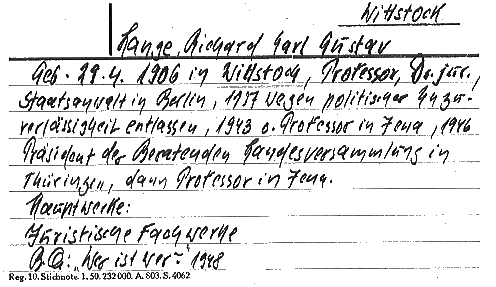 Wittstock
Lange, Richard Carl Gustav
Geb. 29.4. 1906 in Wittstock, Professor, Dr. jur.,
Staatsanwalt in Berlin, 1937 wegen politischer Unzu-
verlässigkeit entlassen, 1943 o. Professor in Jena, 1946
Präsident der Beratenden Landesversammlung in
Thüringen, dann Professor in Jena.
Hauptwerke:
Juristische Fachwerke
B.Q.: "Wer ist wer" 1948
Reg. 10. Stichnote. 1. 50. 232000. A. 803. S. 4062